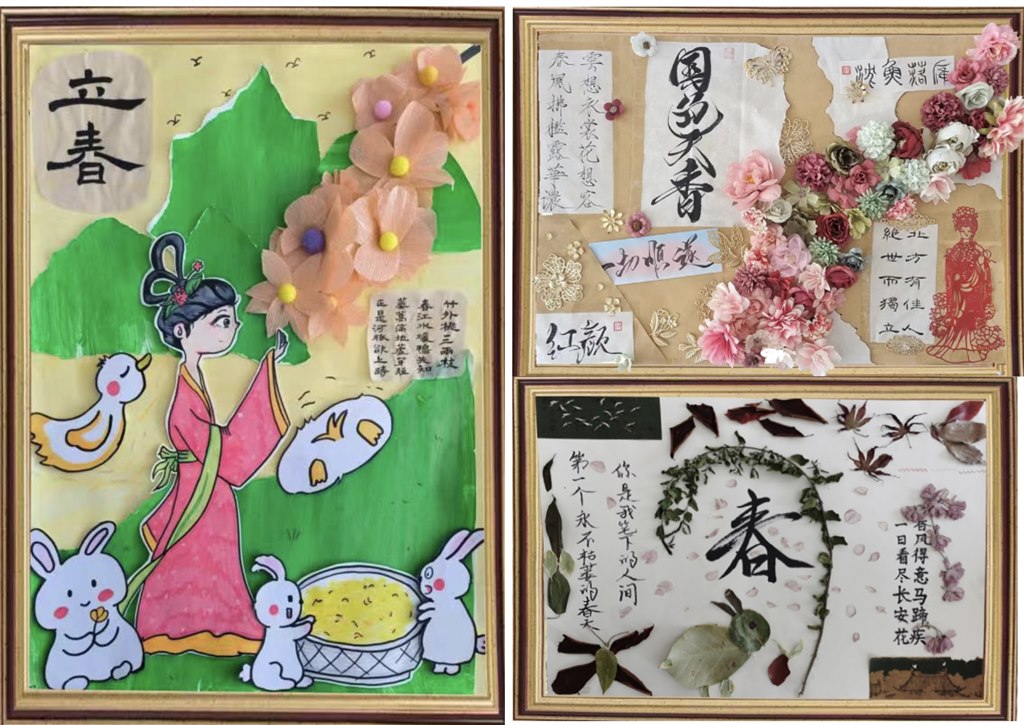 立春
竹外桃三兩枝
春江水暖鴨先知
蔞蒿滿地蘆芽短
正是河豚欲上時
雲想衣裳花想容
春風拂檻露華濃
国色天香
沈魚落雁
一切順遂
北方有佳人
絕世而獨立
红颜
你是我笔下的人间
第一个永不枯萎的春天
春
春风得意马蹄疾
一日看尽长安花